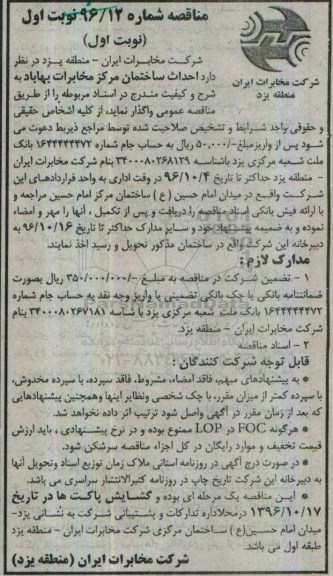 مناقصه شماره ۹۶/۱۲ نوبت اول
(نوبت اول)
شرکت مخابرات ایران
منطقه یزد
شرکت مخابرات ایران - منطقه یزد در نظر
دارد احداث ساختمان مرکز مخابرات بهاباد به
شرح و کیفیت مندرج در اسناد مربوطه را از طریق
مناقصه عمومی واگذار نماید، از کلیه اشخاص حقیقی
و حقوقی واجد شرایط و تشخیص صلاحیت شده توسط مراجع ذیربط دعوت می
شود پس از واریز مبلغ -/۵۰،۰۰۰ ریال به حساب جام شماره ۱۶۴۴۴۴۴۴۷۲ بانک
ملت شعبه مرکزی یزد باشناسه ۳۴۰۰۰۸۰۲۶۸۱۲۹ بنام شرکت مخابرات ایران
- منطقه یزد حداکثر تا تاریخ ۹۶/۱۰/۴ در وقت اداری به واحد قراردادهای این
شرکت واقع در میدان امام حسین (ع) ساختمان مرکز امام حسین مراجعه و
با ارائه فیش بانکی اسناد مناقصه را دریافت و پس از تکمیل ، آنها را مهر و امضاء
نموده و به ضمیمه پیشنهاد خود و سایر مدارک حداکثر تا تاریخ ۹۶/۱۰/۱۶ به
دبیرخانه این شرکت واقع در ساختمان مذکور تحویل و رسید اخذ نمایند.
مدارک لازم :
۱ - تضمین شرکت در مناقصه به مبلغ -/۳۵۰/۰۰۰/۰۰۰ ریال بصورت
ضمانتنامه بانکی یا چک بانکی تضمینی یا واریز وجه نقد به حساب جام شماره
۱۶۴۴۴۴۴۴۷۲ بانک ملت شعبه مرکزی یزد با شناسه ۳۴۰۰۰۸۰۲۶۷۱۸۱ بنام
شرکت مخابرات ایران - منطقه یزد.
۲ - اسناد مناقصه
قابل توجه شرکت کنندگان :
* به پیشنهادهای مبهم، فاقد امضاء، مشروط، فاقد سپرده، یا سپرده مخدوش،
یا سپرده کمتر از میزان مقرر، با چک شخصی ونظایر اینها وهمچنین پیشنهادهایی
که بعد از زمان مقرر در آگهی واصل شود ترتیب اثر داده نخواهد شد.
* هرگونه FOC در LOP ممنوع بوده و در نرخ پیشنهادی ، باید ارزش
قیمت تخفیف و موارد رایگان در کل اجزاء مناقصه سرشکن شود.
* در صورت درج آگهی در روزنامه استانی ملاک زمان توزیع اسناد وتحویل آنها
به دبیرخانه این شرکت تاریخ چاپ در روزنامه کثیرالانتشار سراسری می باشد.
* این مناقصه یک مرحله ای بوده و گشایش پاکت ها در تاریخ
۱۳۹۶/۱۰/۱۷ درمحل‌اداره تدارکات و پشتیبانی شرکت به نشانی یزد-
میدان امام حسین(ع) ساختمان مرکزی شرکت مخابرات ایران - منطقه یزد
طبقه اول می باشد.
شرکت مخابرات ایران (منطقه یزد)